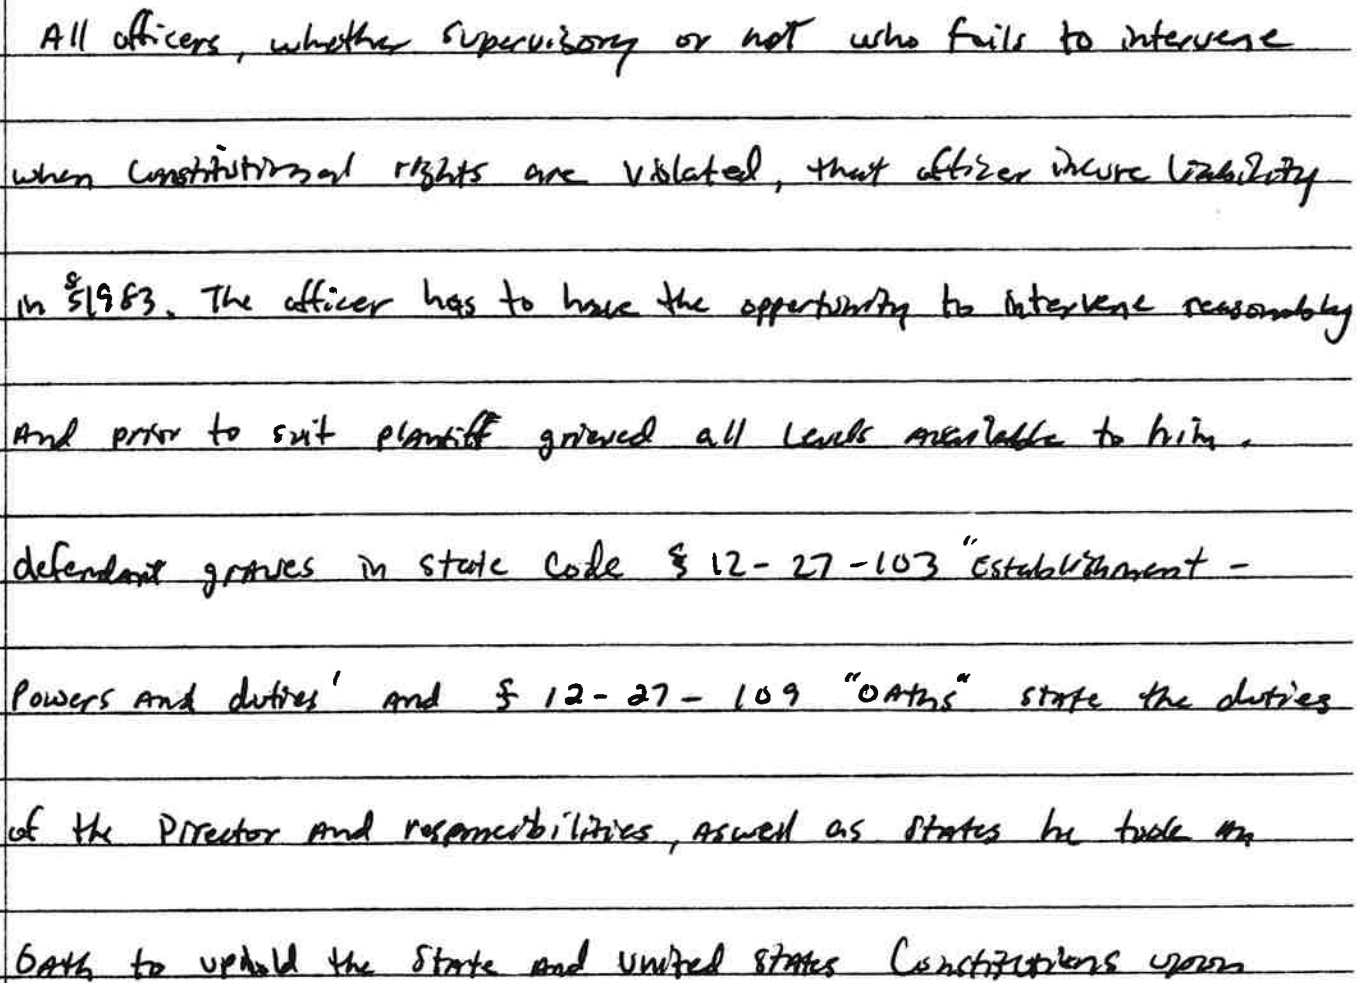 All officers, whether supervisory or not who fails to intervene
when Constitutional rights are violated, that officer incure liability
in §1983. The officer has to have the opportunity to intervene reasonably
And prior to suit plantiff grieved all levels available to him.
defendant graves in state Code § 12-27-103 "Establishment -
Powers And duties' And § 12-27-109 "OAths" state the duties
of the Director And responcibilities, aswell as states he took an
OAth to uphold the State And United States Constitutions upon